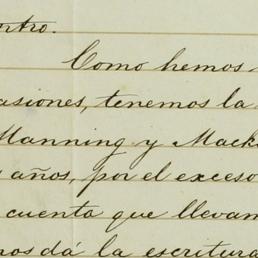 ntro.
Como hemos
asiones, tenemos la
Manning y Mack
años, por el exceso
cuenta que llevam
nos dá la escritura